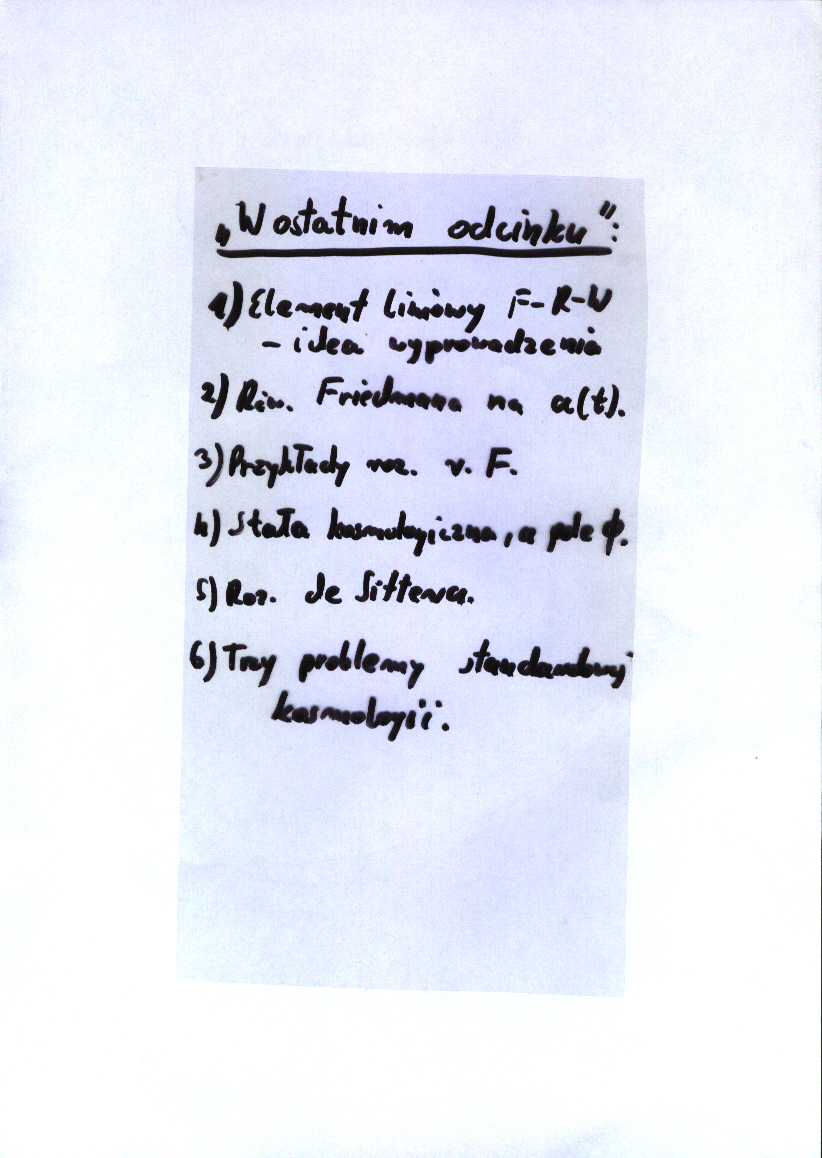 „W ostatnim odcinku":
1) Element liniowy F-R-W
- idea wyprowadzenia
2) Rów. Friedmana na a(t).
3) Przykłady roz. r. F.
4) Stała kosmologiczna, a pole φ.
5) Roz. de Sittera.
6) Trzy problemy standardowej
kosmologii.